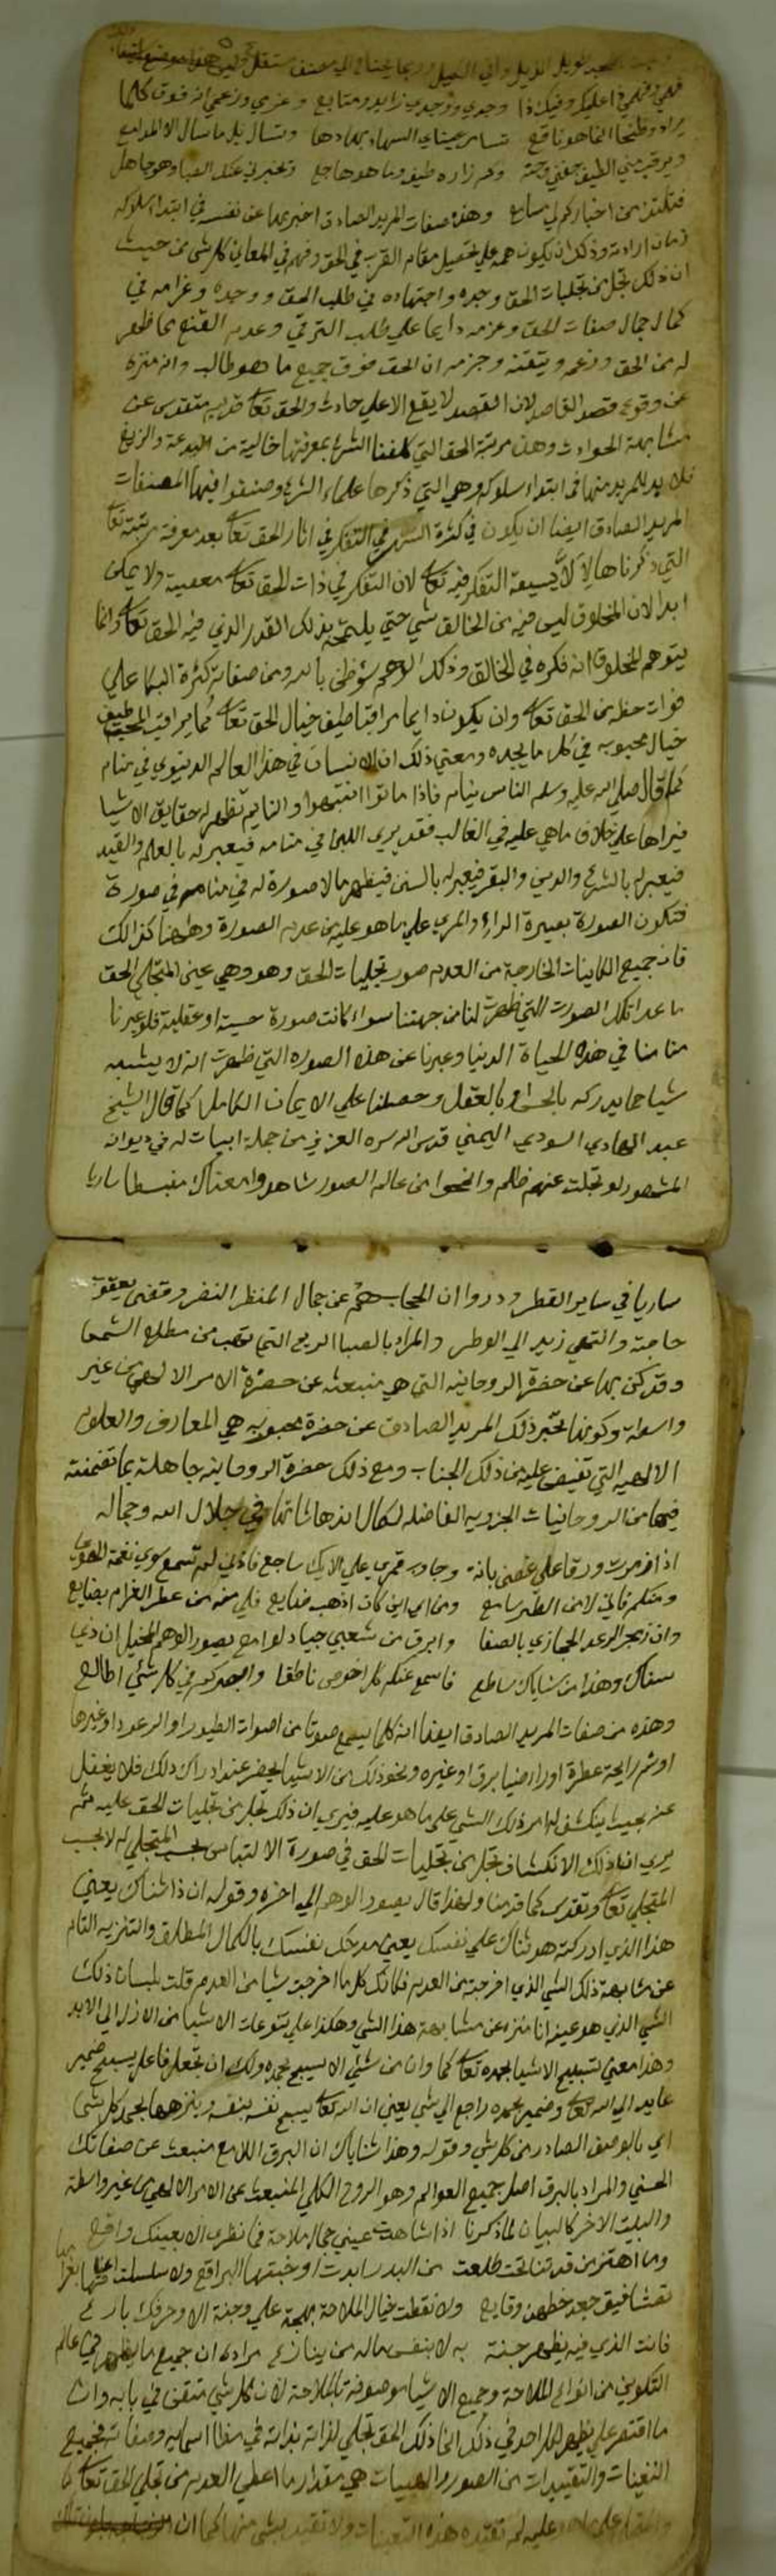 فهمي وفهمي في اعليكم وفيك ذا وجدي ووجدي زايد ومتابع وعزمي وزعمي انه فوق كلما
يراد وظني انما هو ناقع تسامر عيناي السهاد بهادها وتسال بل ما سال الا المدامع
ويرقب مني الطيف جفني وحقه وكم زاره طيف وما هو هاجع وتخبرني عنك الصبا وهو جاهل
فتلتذ من اخباركم لي مسامع وهذه صفات المريد الصادق اخبر بها عن نفسه في ابتداء سلوكه
زمان ارادته وذلك ان يكون همه علي تحصيل مقام القرب في الحق وفهمه في المعاين كل شي من حيث
ان ذلك تجل من تجليات الحق ووجده واجتهاده في طلب الحق ووجده وغرامه في
كمال جمال صفات الحق وعزمه دايما علي طلب الترقي وعدم القنع بما ظهر
له من الحق وزعمه ويتقنه وجزمه ان الحق فوق جميع ما هو طالب وانه منزه
عن وقوع قصد القاصد لان القصد لا يقع الا علي حادث والحق تعا قديم متقدس عن
مشابهة الحوادث وهذه مرتبة الحق التي كلفنا الشرع بمعرفتها خالية من البدعة والزيغ
فلا بد للمريد منها في ابتداء سلوكه وهي التي ذكرها علماء الشرع وصنفوا فيها المصنفات
المريد الصادق ايضا ان يكون في كثرة السهر في التفكر في اثار الحق تعا بعد معرفة مرتبته تعا
التي ذكرناها لا يسعه التفكر فيه تعا لان التفكر في ذات الحق تعا معصية ولا يمكن
ابدا لان المخلوق ليس فيه من الخالق شي حتي يلتمحه بذلك القدر الذي فيه الحق تعا وانما
يتوهم المخلوق انه فكره في الخالق وذلك الوهم سؤ ظن بالله ومن صفاته كثرة البكا علي
فوات حظه من الحق تعا وان يكون دايما مراقبا طيف خيال الحق تعا كما يراقب المحب طيف
خيال محبوبه في كل ما يجده ومعني ذلك ان الانسان في هذا العالم الدنيوي في منام
كما قال صلي الله عليه وسلم الناس نيام فاذا ماتوا انتبهوا والنايم تظهر له حقايق الاشيا
فيراها علي خلاف ما هي عليه في الغالب فقد يري اللبن في منامه فيعبر له بالعلم والقيد
فيعبر له بالشرع والدين والبقر فيعبر له بالسنين فيظهر ما لا صورة له في منامه في صورة
فتكون الصورة بعبرة الراي والمري علي ما هو عليه من عدم الصورة وههنا كذالك
فان جميع الكاينات الخارجة من العدم صور تجليات الحق وهو وهي عين المتجلي الحق
ما عدا تلك الصورت التي ظهرت لنا من جهتنا سوا كانت صورة حسية او عقلية فلو عبرنا
منامنا في هذه الحياة الدنيا وعبرنا عن هذه الصوره التي ظهرت انه لا يشبه
شيا مما يدركه بالحس او بالعقل وحصلنا علي الايمان الكامل كما قال الشيخ
عبد الهادي السودي اليمني قدس الله سره العزيز من جملة ابيات له في ديوانه
المشهور لو تجلت عنهم ظلم وانمحوا من عالم الصور شاهدوا معناك منبسطا ساريا
ساريا في ساير القطر ودروا ان الحجاب هم عن جمال المنظر النضر وقضي يعقوب
حاجته وانتهي زيد الي الوطر والمراد بالصبا الريح التي تهب من مطلع الشمس
وقد كني بها عن حضرة الروحانيه التي هي منبعثه عن حضرة الامر الالهي من غير
واسطه وكونها تخبر ذلك المريد الصادق عن حضرة محبوبه هي المعارف والعلوم
الالهيه التي تفيض عليه من ذلك الجناب ومع ذلك حضرة الروحانيه جاهلة بما تضمنته
فيها من الروحانيات الجزويه الفاضله لكمال اندهاشاتها في جلال الله وجماله
اذا زمرت ورقا علي غصن بانة وجاوب قمري علي الايك ساجع فاذني لم تسمع سوي نغمة الهوي
ومنكم فاني لا من الطير سامع ومن اي اين كان اذ هب ضايع فلي منه من عطر الغرام بضايع
وان زمجر الرعد الحجازي بالصفا وابرق من شعبي جياد لوامع يصور الوهم المخيل ان ذي
سناك وهذا من ثناياك ساطع فاسمع عنكم كل اخرس ناطقا وابصركم في كل شي اطالع
وهذه من صفات المريد الصادق ايضا انه كلما يسمع صوتا من اصوات الطيور او الرعود او غيرها
او شم رايحة عطرة او راي ضيا برق او غيره ونحو ذلك من الاشيا يحضر عند ادراك ذلك فلا يغفل
عنه بحيث ينكشف له امر ذلك الشي علي ما هو عليه فيري ان ذلك تجل من تجليات الحق عليه ثم
يري ان ذلك الانكشاف تجل من تجليات الحق في صورة الالتباس بحسب المتجلي له لا بحسب
المتجلي تعا وتقدس كما قدمنا ولهذا قال يصور الوهم الي اخره وقوله ان ذا ثناك يعني
هذا الذي ادركته هو ثناك علي نفسك يعني مدحك نفسك بالكمال المطلق والتنزيه التام
عن مشابهة ذلك الشي الذي اخرجته من العدم فكانك كلما اخرجت شيا من العدم قلت بلسان ذلك
الشي الذي هو عينه انا منزه عن مشابهة هذا الشي وهكذا علي تنوعات الاشيا من الازل الي الابد
وهذا معني تسبيح الاشيا بحمده تعا كما وان من شي الا يسبح بحمده ولك ان تجعل فاعل يسبح ضمير
عايد الي الله تعا وضمير بحمده راجع الي شي يعني ان الله تعا يسبح نفسه بنفسه وينزهها بحمد كل شي
اي بالوصف الصادر من كل شي وقوله وهذا ثناياك ان البرق اللامع منبعث عن صفاتك
الحسني والمراد بالبرق اصل جميع العوالم وهو الروح الكلي المنبعث عن الامر الالهي من غير واسطة
والبيت الاخر كالبيان لما ذكرنا اذا شاهدت عيني جمال ملاحة فما نظري الا بعينك واقع
وما اهتز من قد قنا تحت طلعت من البدر ابدت او خبتها البراقع ولا سلسلت
ولا نقطت خيال الملاحة بهجة علي وجنة الا وحرفك بارع
فانت الذي فيه يظهر حسنه به لا بنفسي ماله من ينازع مراده ان جميع ما يظهر في عالم
التكوين من انواع الملاحة وجميع الاشيا موصوفة بالملاحة لان كل شي متقن في بابه وان
ما اقتصر علي يظهر لكل احد في ذلك انما ذلك الحق تجلي لذاته بذاته في مظاهر اسمايه وصفاته فجميع
التعينات والتقييدات من الصور والهييات هي مقدار ما اعطي العدم من تجلي الحق تعا
عليه لم تقيده هذه التعينات ولا تقيد بشي منها كما ان